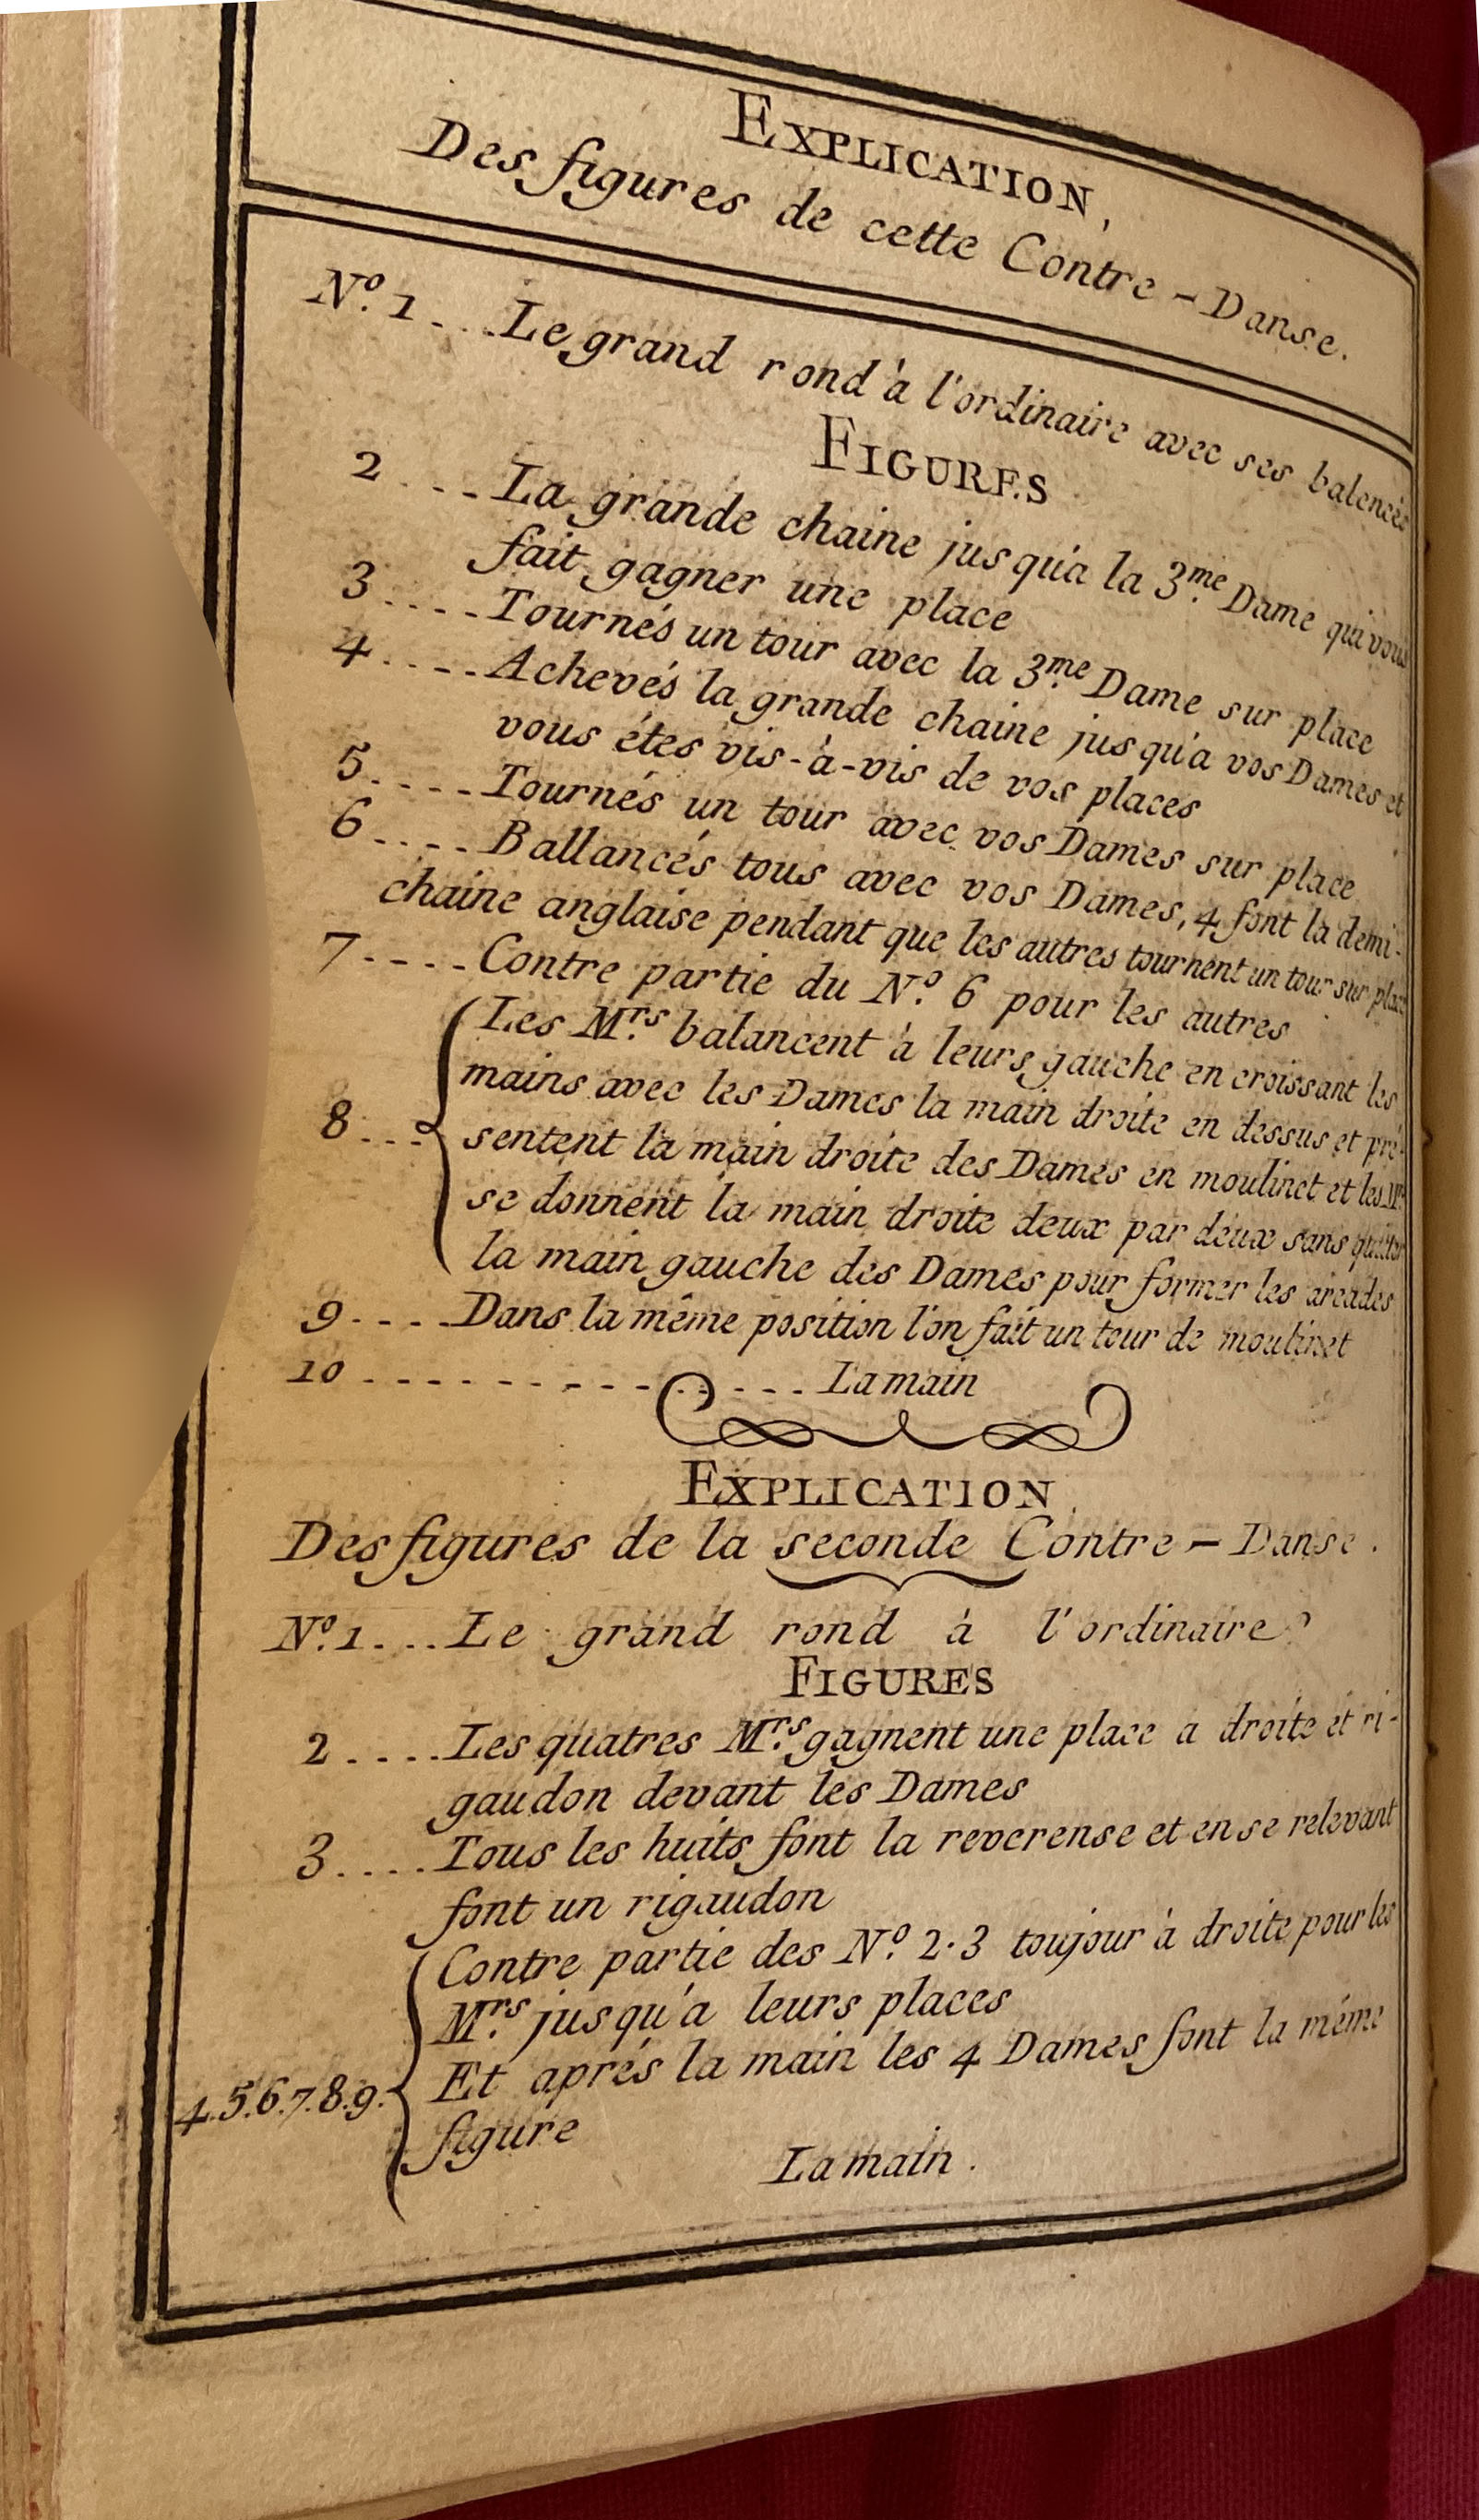 EXPLICATION,
Des figures de cette Contre-Danse.
N.º 1... Le grand rond à l'ordinaire avec ses balencés
FIGURES
2 .... La grande chaine jusqu'a la 3.me Dame qui vous
fait gagner une place
3 .... Tournés un tour avec la 3.me Dame sur place
4 .... Achevés la grande chaine jusqu'a vos Dames et
vous étes vis-à-vis de vos places
5 .... Tournés un tour avec vos Dames sur place
6 .... Ballancés tous avec vos Dames, 4 font la demi-
chaine anglaise pendant que les autres tournent un tour sur place
7 .... Contre partie du N.º 6 pour les autres
Les M.rs balancent à leurs gauche en croissant les
mains avec les Dames la main droite en dessus et pré-
8 ... sentent la main droite des Dames en moulinet et les M.rs
se donnent la main droite deux par deux sans quitter
la main gauche des Dames pour former les arcades
9 .... Dans la même position l'on fait un tour de moulinet
10 .............. La main
EXPLICATION
Des figures de la seconde Contre-Danse.
N.º 1.... Le grand rond à l'ordinaire
FIGURES
2 .... Les quatres M.rs gagnent une place a droite et ri-
gaudon devant les Dames
3 .... Tous les huits font la reverense et en se relevant
font un rigaudon
Contre partie des N.º 2.3 toujour à droite pour les
M.rs jusqu'a leurs places
4.5.6.7.8.9. Et aprés la main les 4 Dames font la méme
figure
La main.